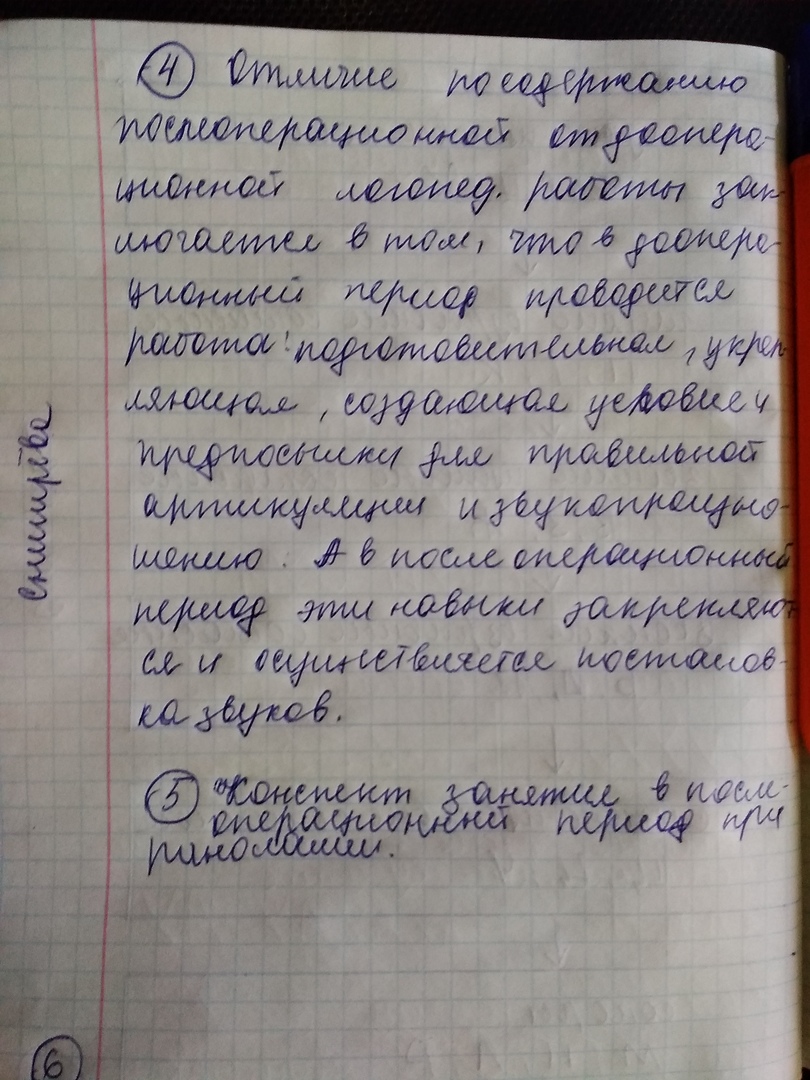 4 Отличие по содержанию
послеоперационной от доопера-
ционной логопед. работы зак-
лючается в том, что в доопера-
ционный период проводится
работа: подготовительная, укреп-
ляющая, создающая условия и
предпосылки для правильной
артикуляции и звукопроизно-
шению. А в послеоперационный
период эти навыки закрепляют
ся и осуществляется постанов-
ка звуков.
5 Конспект занятия в после-
операционный период при
ринолалии.
Снигирёва
6